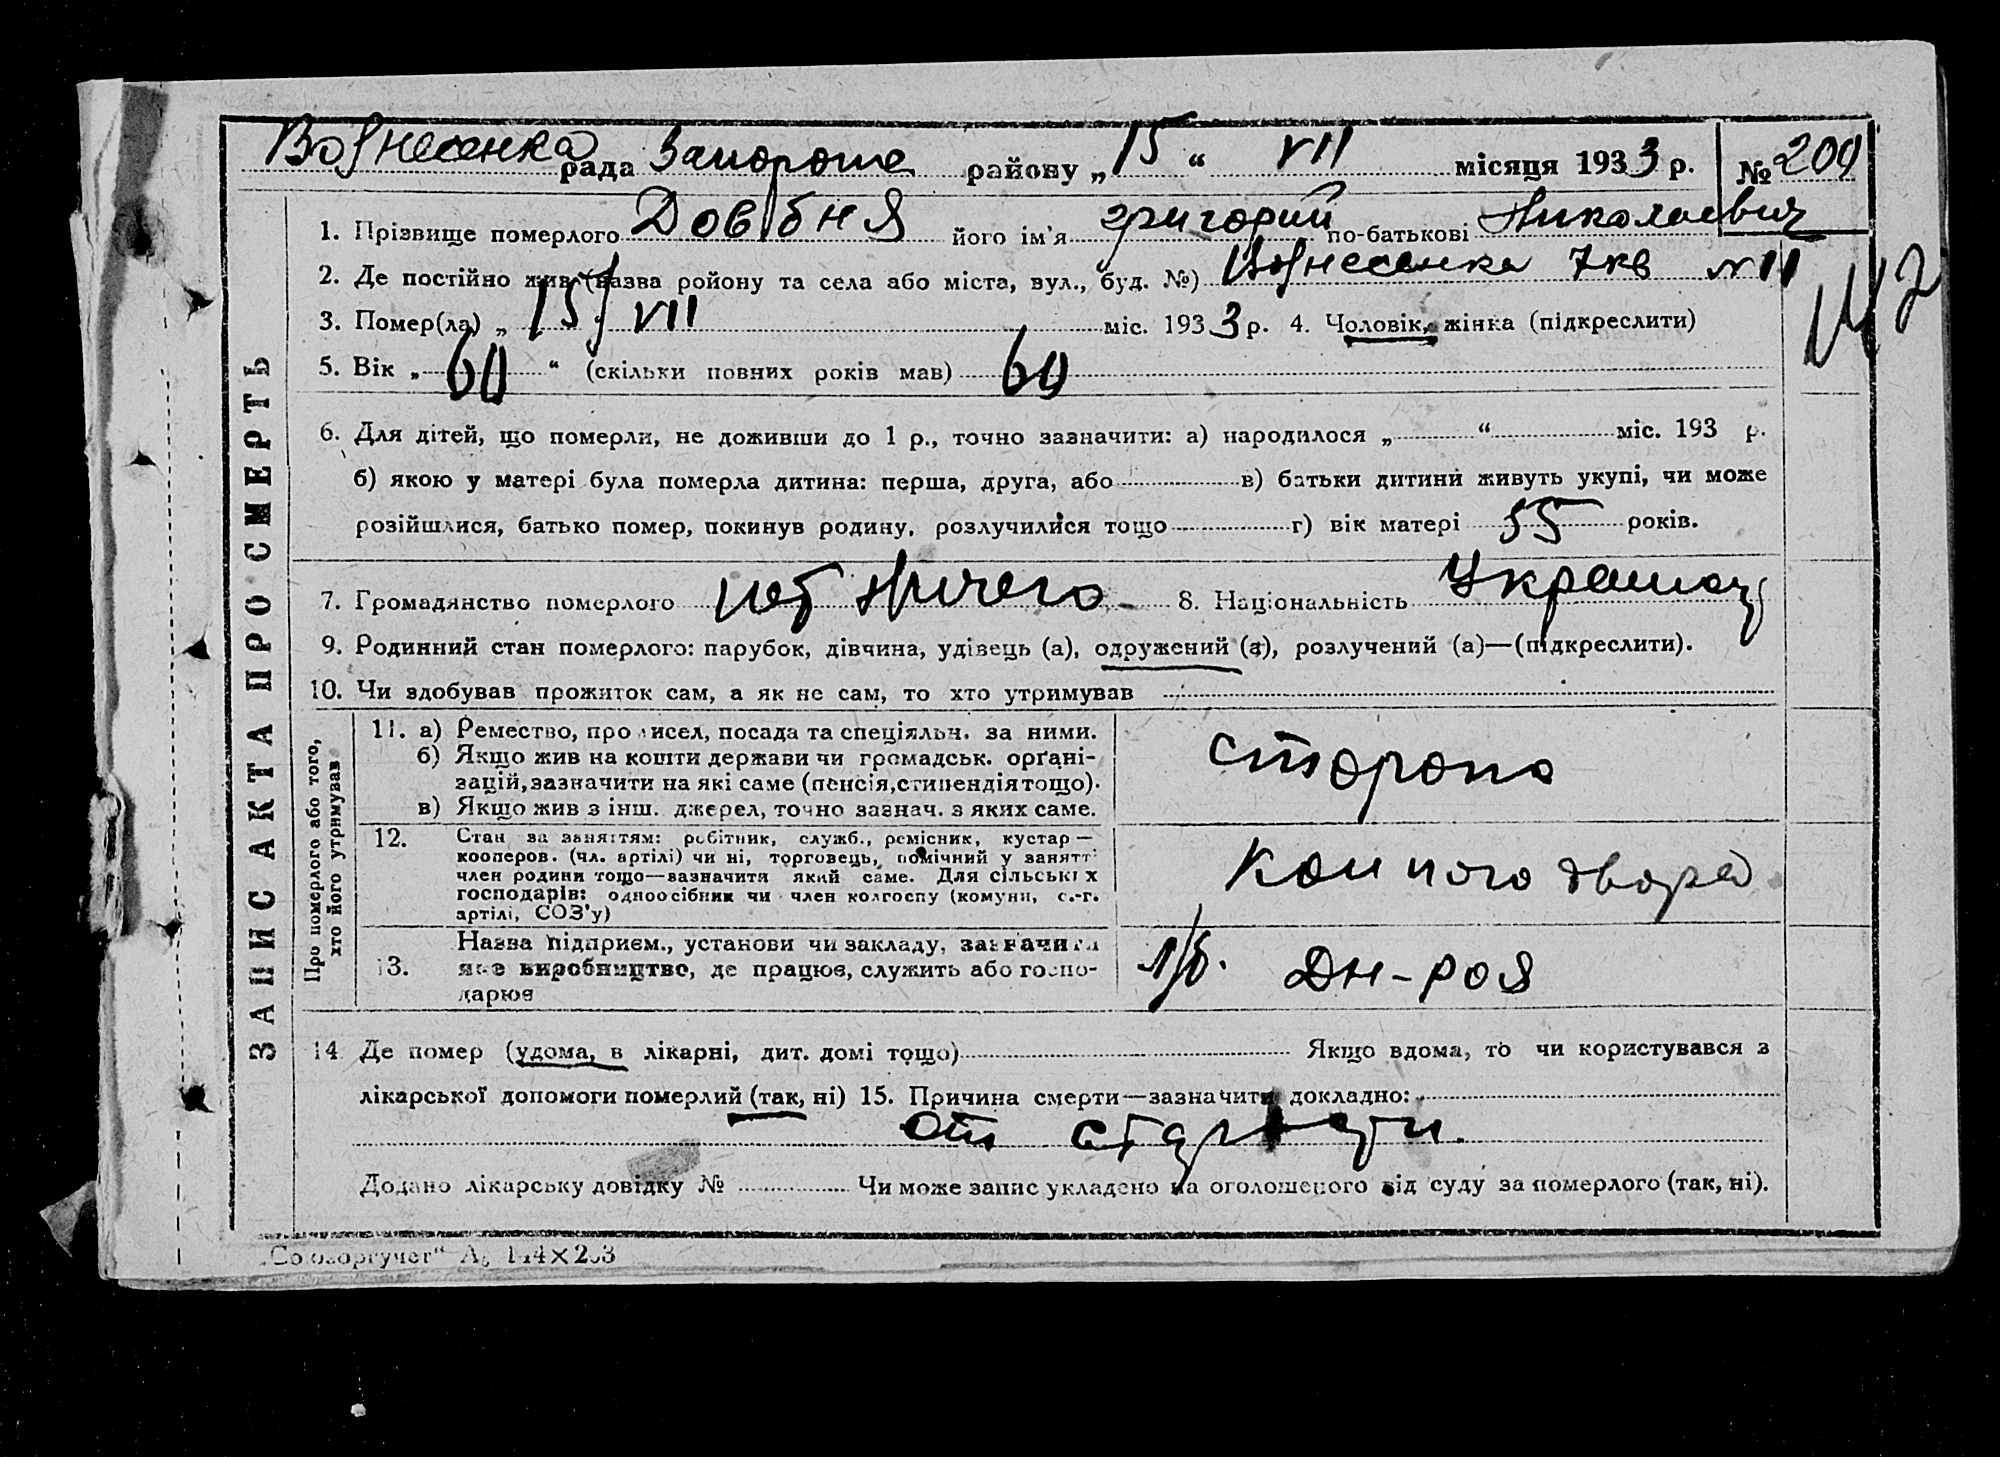 Вознесенка рада Запороже району „15“ VII місяця 1933 р. № 209
1. Прізвище померлого Довбня його ім'я григорий по-батькові Николаевич
2. Де постійно жив (назва ройону та села або міста, вул., буд. №) Вознесенка 7 кв № 11
3. Помер(ла) „15“ VII міс. 1933 р. 4. Чоловік, жінка (підкреслити)
5. Вік „60“ (скільки повних років мав) 60
6. Для дітей, що померли, не доживши до 1 р., точно зазначити: а) народилося „ “ міс. 193 р.
б) якою у матері була померла дитина: перша, друга, або в) батьки дитини живуть укупі, чи може
розійшлися, батько помер, покинув родину, розлучилися тощо г) вік матері 55 років.
7. Громадянство померлого нет ничего 8. Національність Украинец
9. Родинний стан померлого: парубок, дівчина, удівець (а), одружений (а), розлучений (а)—(підкреслити).
10. Чи здобував прожиток сам, а як не сам, то хто утримував
ЗАПИС АКТА ПРО СМЕРТЬ
Про померлого або того,
хто його утримував
11. а) Ремество, промисел, посада та спеціяльн. за ними.
б) Якщо жив на кошти держави чи громадськ. орґані-
зацій, зазначити на які саме (пенсія, стипендія тощо).
в) Якщо жив з інш. джерел, точно зазнач. з яких саме.
сторожа
12. Стан за заняттям: робітник, служб., ремісник, кустар—
кооперов. (чл. артілі) чи ні, торговець, помічний у занятті
член родини тощо—зазначити який саме. Для сільських
господарів: одноосібник чи член колгоспу (комуни, с.-г.
артілі, СОЗ'у)
Конного двора
13. Назва підприєм., установи чи закладу, зазначити
яке виробництво, де працює, служить або госпо-
дарює
ДН-РОЯ
14 Де помер (удома, в лікарні, дит. домі тощо) Якщо вдома, то чи користувався з
лікарської допомоги померлий (так, ні) 15. Причина смерти—зазначити докладно:
От старости.
Додано лікарську довідку № Чи може запис укладено на оголошеного від суду за померлого (так, ні).
„Союзоргучет“